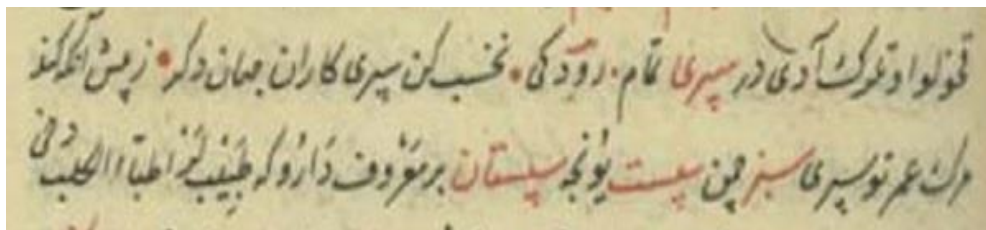 قوقولو اوتلوك آديدر سپری تمام رودکی نخسب کن سپری کاران جهان دگر ز پیش آنکه کند
مرك عمر تو سپری سبز چمن سپست یونجه سپستان بر معروف دارو که طبیب لر اطباء الکلب دخی